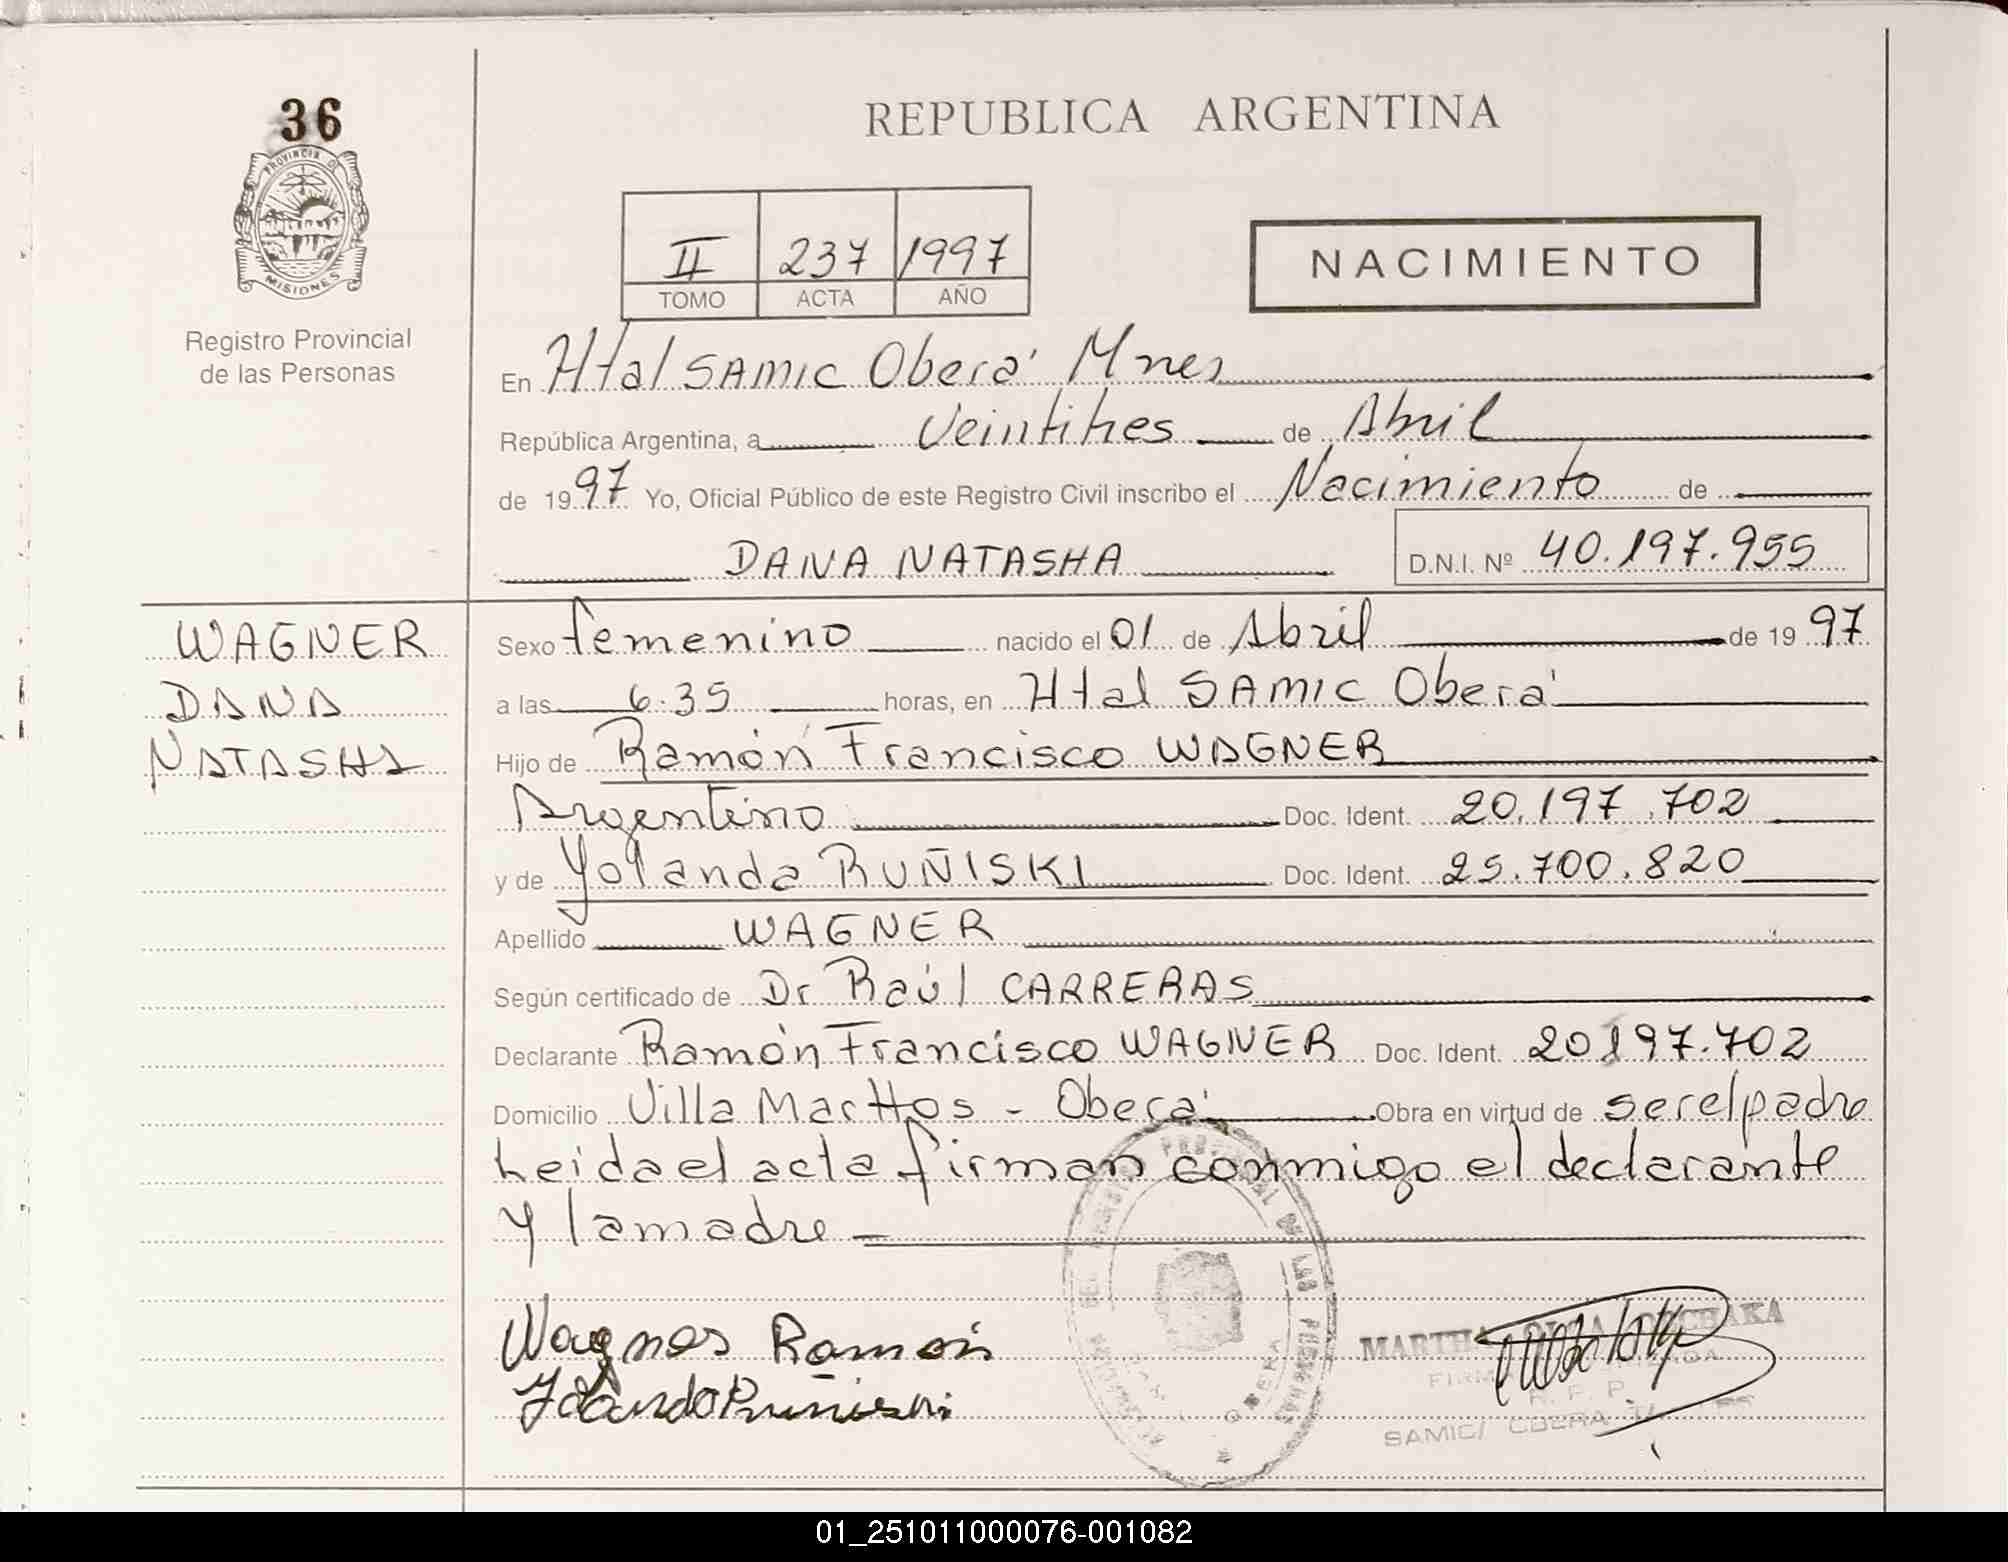 36
PROVINCIA DE
MISIONES
Registro Provincial
de las Personas
REPUBLICA ARGENTINA
II 237 1997
TOMO ACTA AÑO
NACIMIENTO
En Htal SAMIC Oberá Mnes
República Argentina, a Veintitres de Abril
de 1997 Yo, Oficial Público de este Registro Civil inscribo el Nacimiento de
DANA NATASHA D.N.I. Nº 40.197.955
WAGNER
DANA
NATASHA
Sexo femenino nacido el 01 de Abril de 1997
a las 6.35 horas, en Htal SAMIC Oberá
Hijo de Ramón Francisco WAGNER
Argentino Doc. Ident. 20.197.702
y de Yolanda RUÑISKI Doc. Ident. 25.700.820
Apellido WAGNER
Según certificado de Dr Raúl CARRERAS
Declarante Ramón Francisco WAGNER Doc. Ident. 20197.702
Domicilio Villa Marttos - Oberá Obra en virtud de ser el padre
Leida el acta firman conmigo el declarante
y la madre
Wagner Ramón
MARTHA
SAMIC/ OBERA
01_251011000076-001082